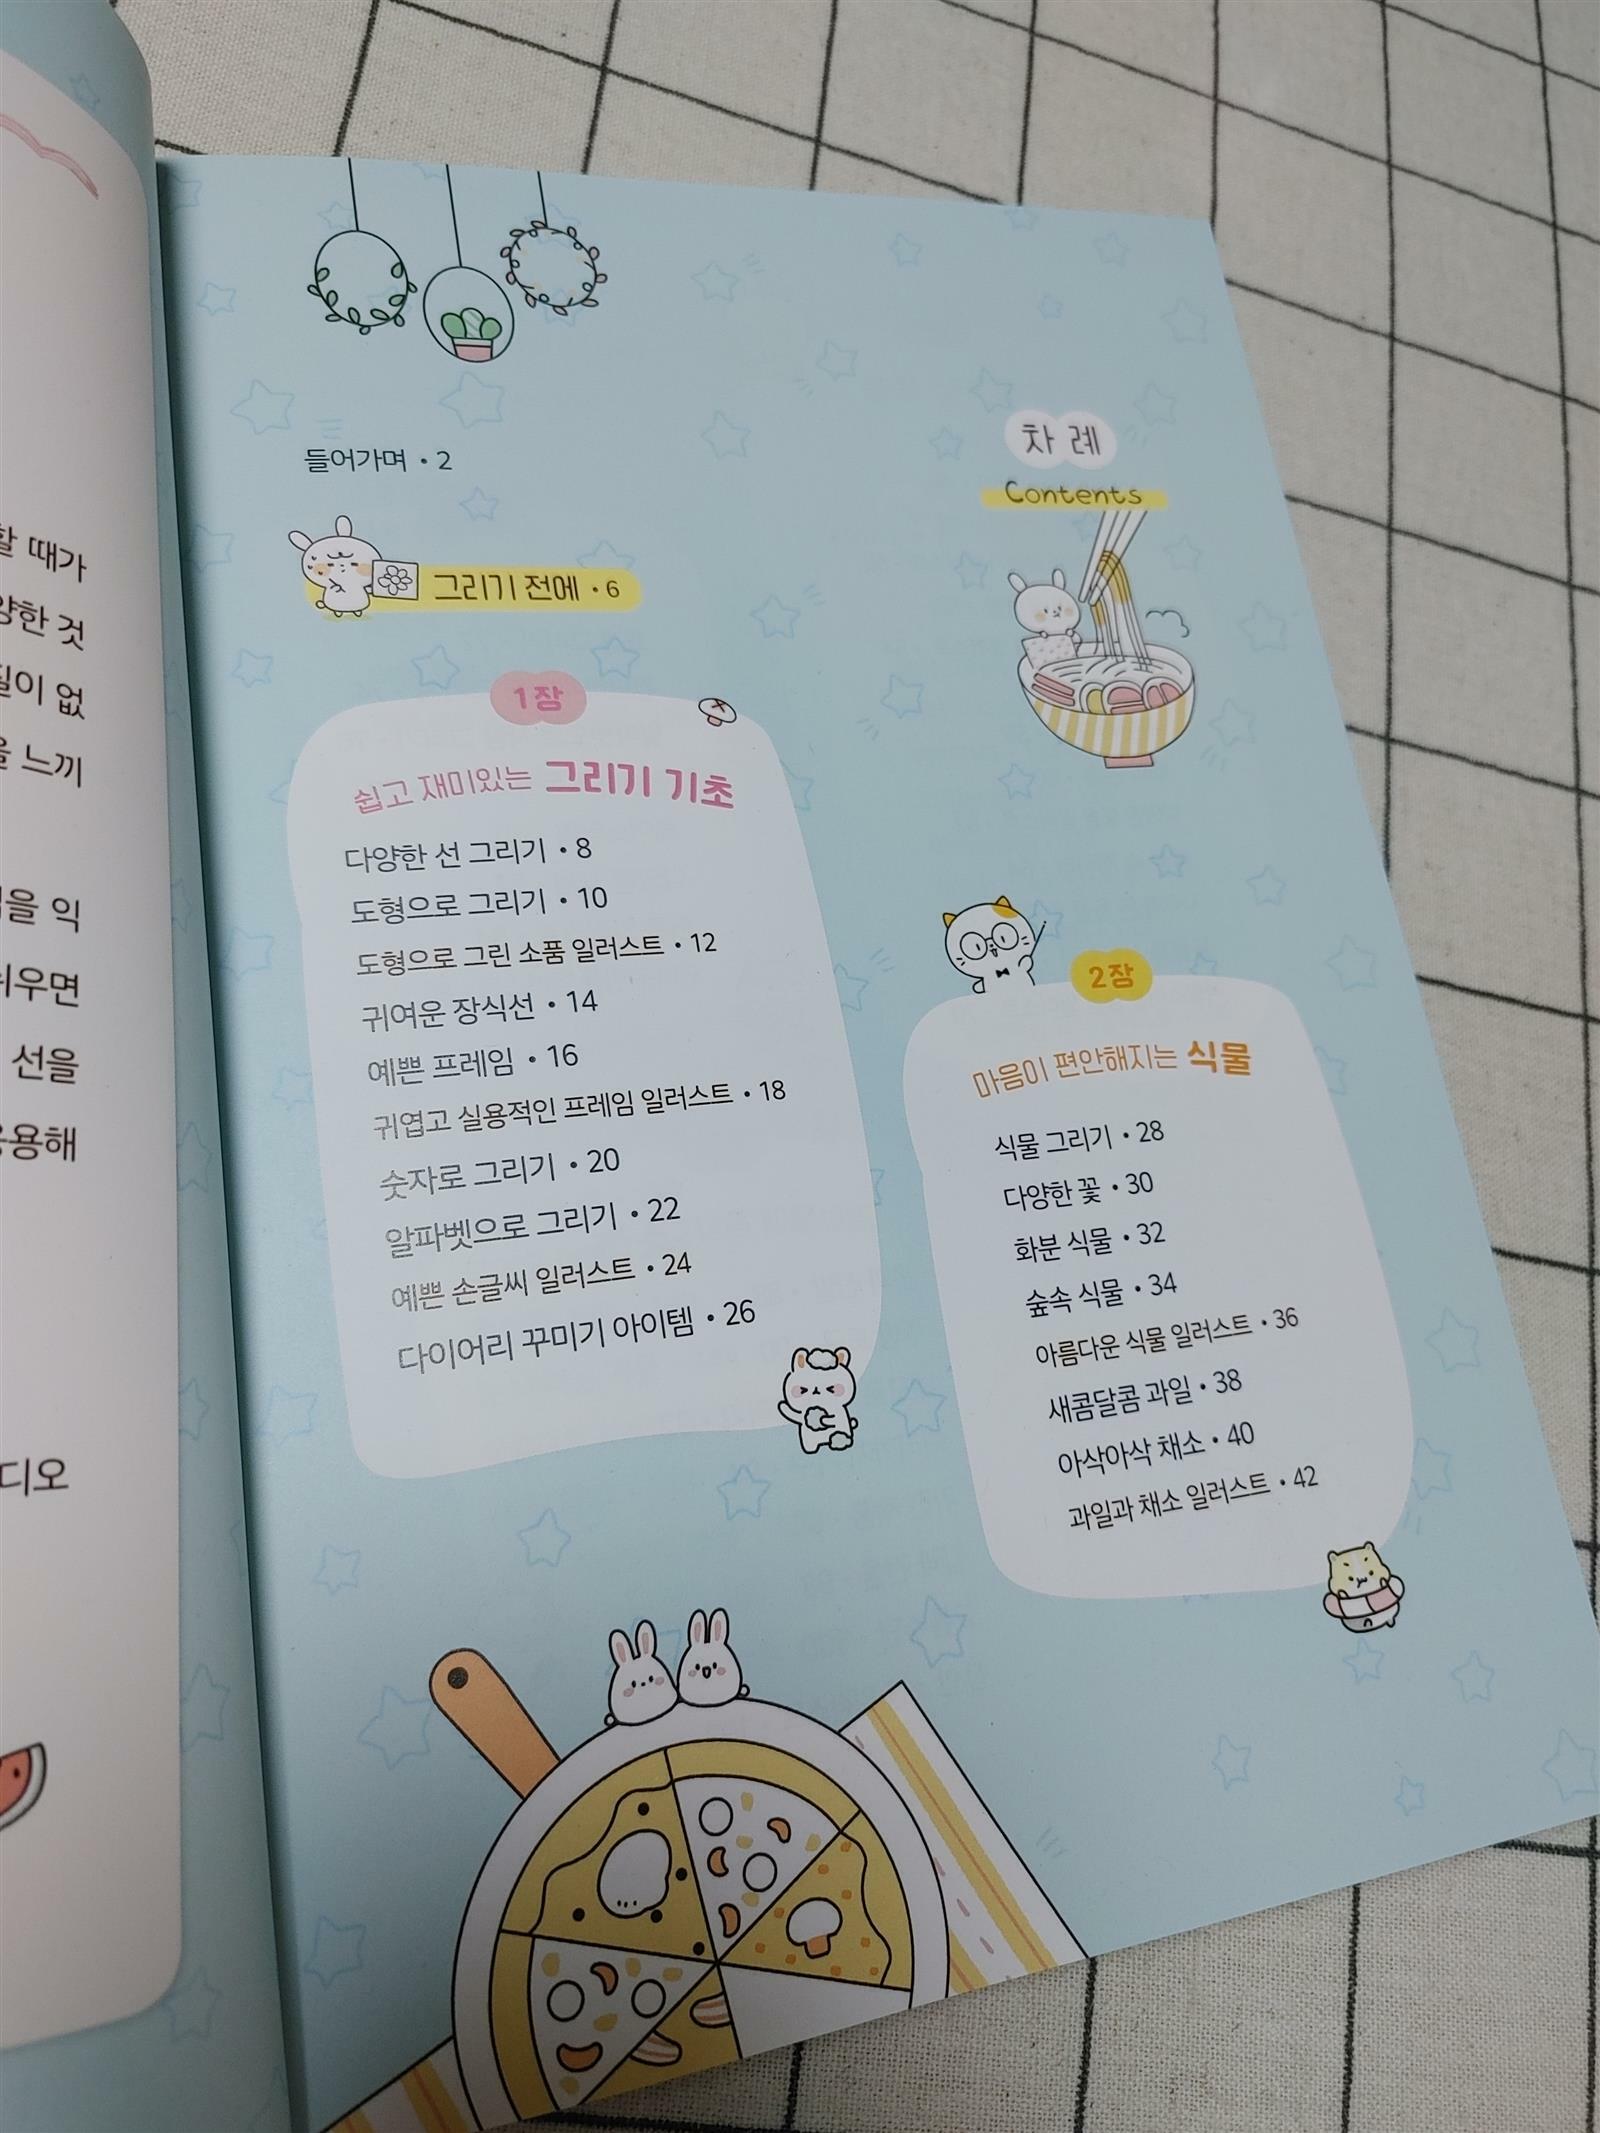 할 때가
양한 것
질이 없
느끼
을 익
쉬우면
선을
응용해
디오
차례
Contents
들어가며 • 2
그리기 전에 • 6
1장
쉽고 재미있는 그리기 기초
다양한 선 그리기 • 8
도형으로 그리기 • 10
도형으로 그린 소품 일러스트 • 12
귀여운 장식선 • 14
예쁜 프레임 • 16
귀엽고 실용적인 프레임 일러스트 • 18
숫자로 그리기 • 20
알파벳으로 그리기 • 22
예쁜 손글씨 일러스트 • 24
다이어리 꾸미기 아이템 • 26
2장
마음이 편안해지는 식물
식물 그리기 • 28
다양한 꽃 • 30
화분 식물 • 32
숲속 식물 • 34
아름다운 식물 일러스트 • 36
새콤달콤 과일 • 38
아삭아삭 채소 • 40
과일과 채소 일러스트 • 42